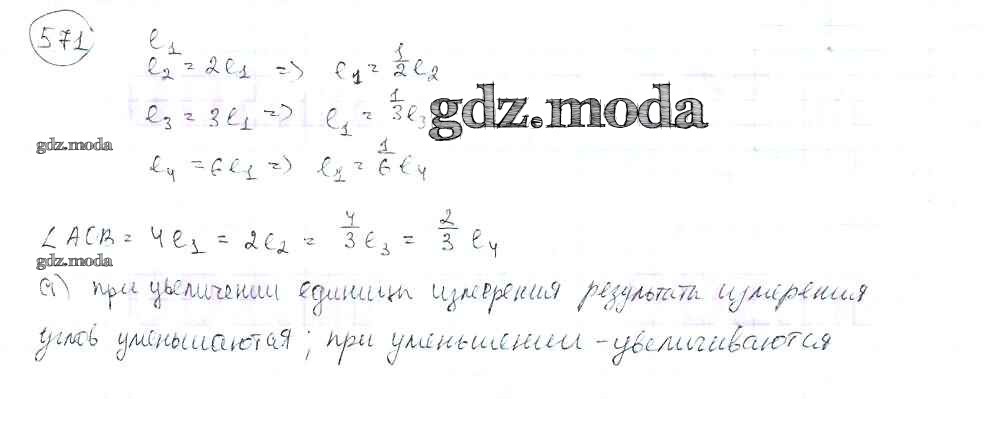 571
e₁
e₂ = 2e₁ => e₁ = 1/2 e₂
e₃ = 3e₁ => e₁ = 1/3 e₃
gdz.moda
gdz.moda
e₄ = 6e₁ => e₁ = 1/6 e₄
∠ACB = 4e₁ = 2e₂ = 4/3 e₃ = 2/3 e₄
gdz.moda
а) при увеличении единицы измерения результаты измерения
углов уменьшаются; при уменьшении - увеличиваются